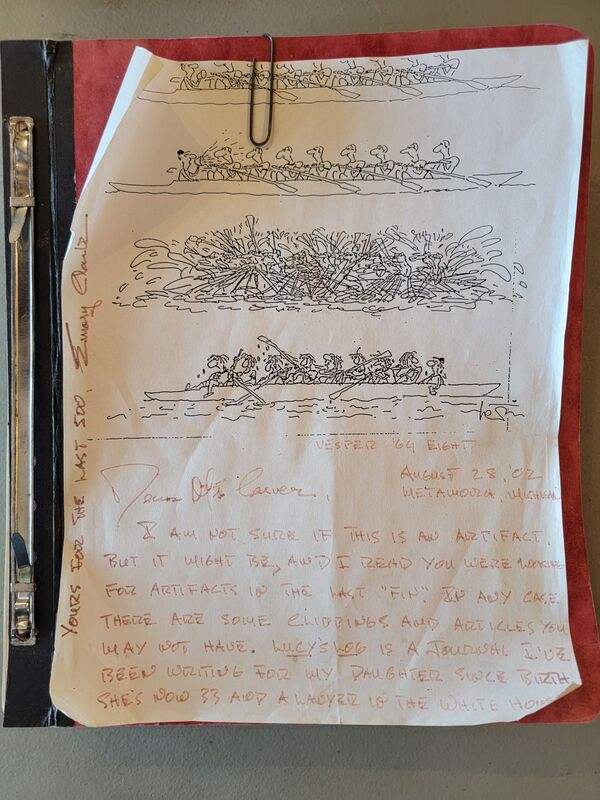 VESPER '64 EIGHT
AUGUST 28, '02
METAMORA, MICHIGAN
Dear
I AM NOT SURE IF THIS IS AN ARTIFACT,
BUT IT MIGHT BE, AND I READ YOU WERE LOOKING
FOR ARTIFACTS IN THE LAST "FIN". IN ANY CASE
THERE ARE SOME CLIPPINGS AND ARTICLES YOU
MAY NOT HAVE. LUCY'S LOG IS A JOURNAL I'VE
BEEN WRITING FOR MY DAUGHTER SINCE BIRTH
SHE'S NOW 33 AND A LAWYER IN THE WHITE HOUSE
YOURS FOR THE LAST 500, Emory Clark